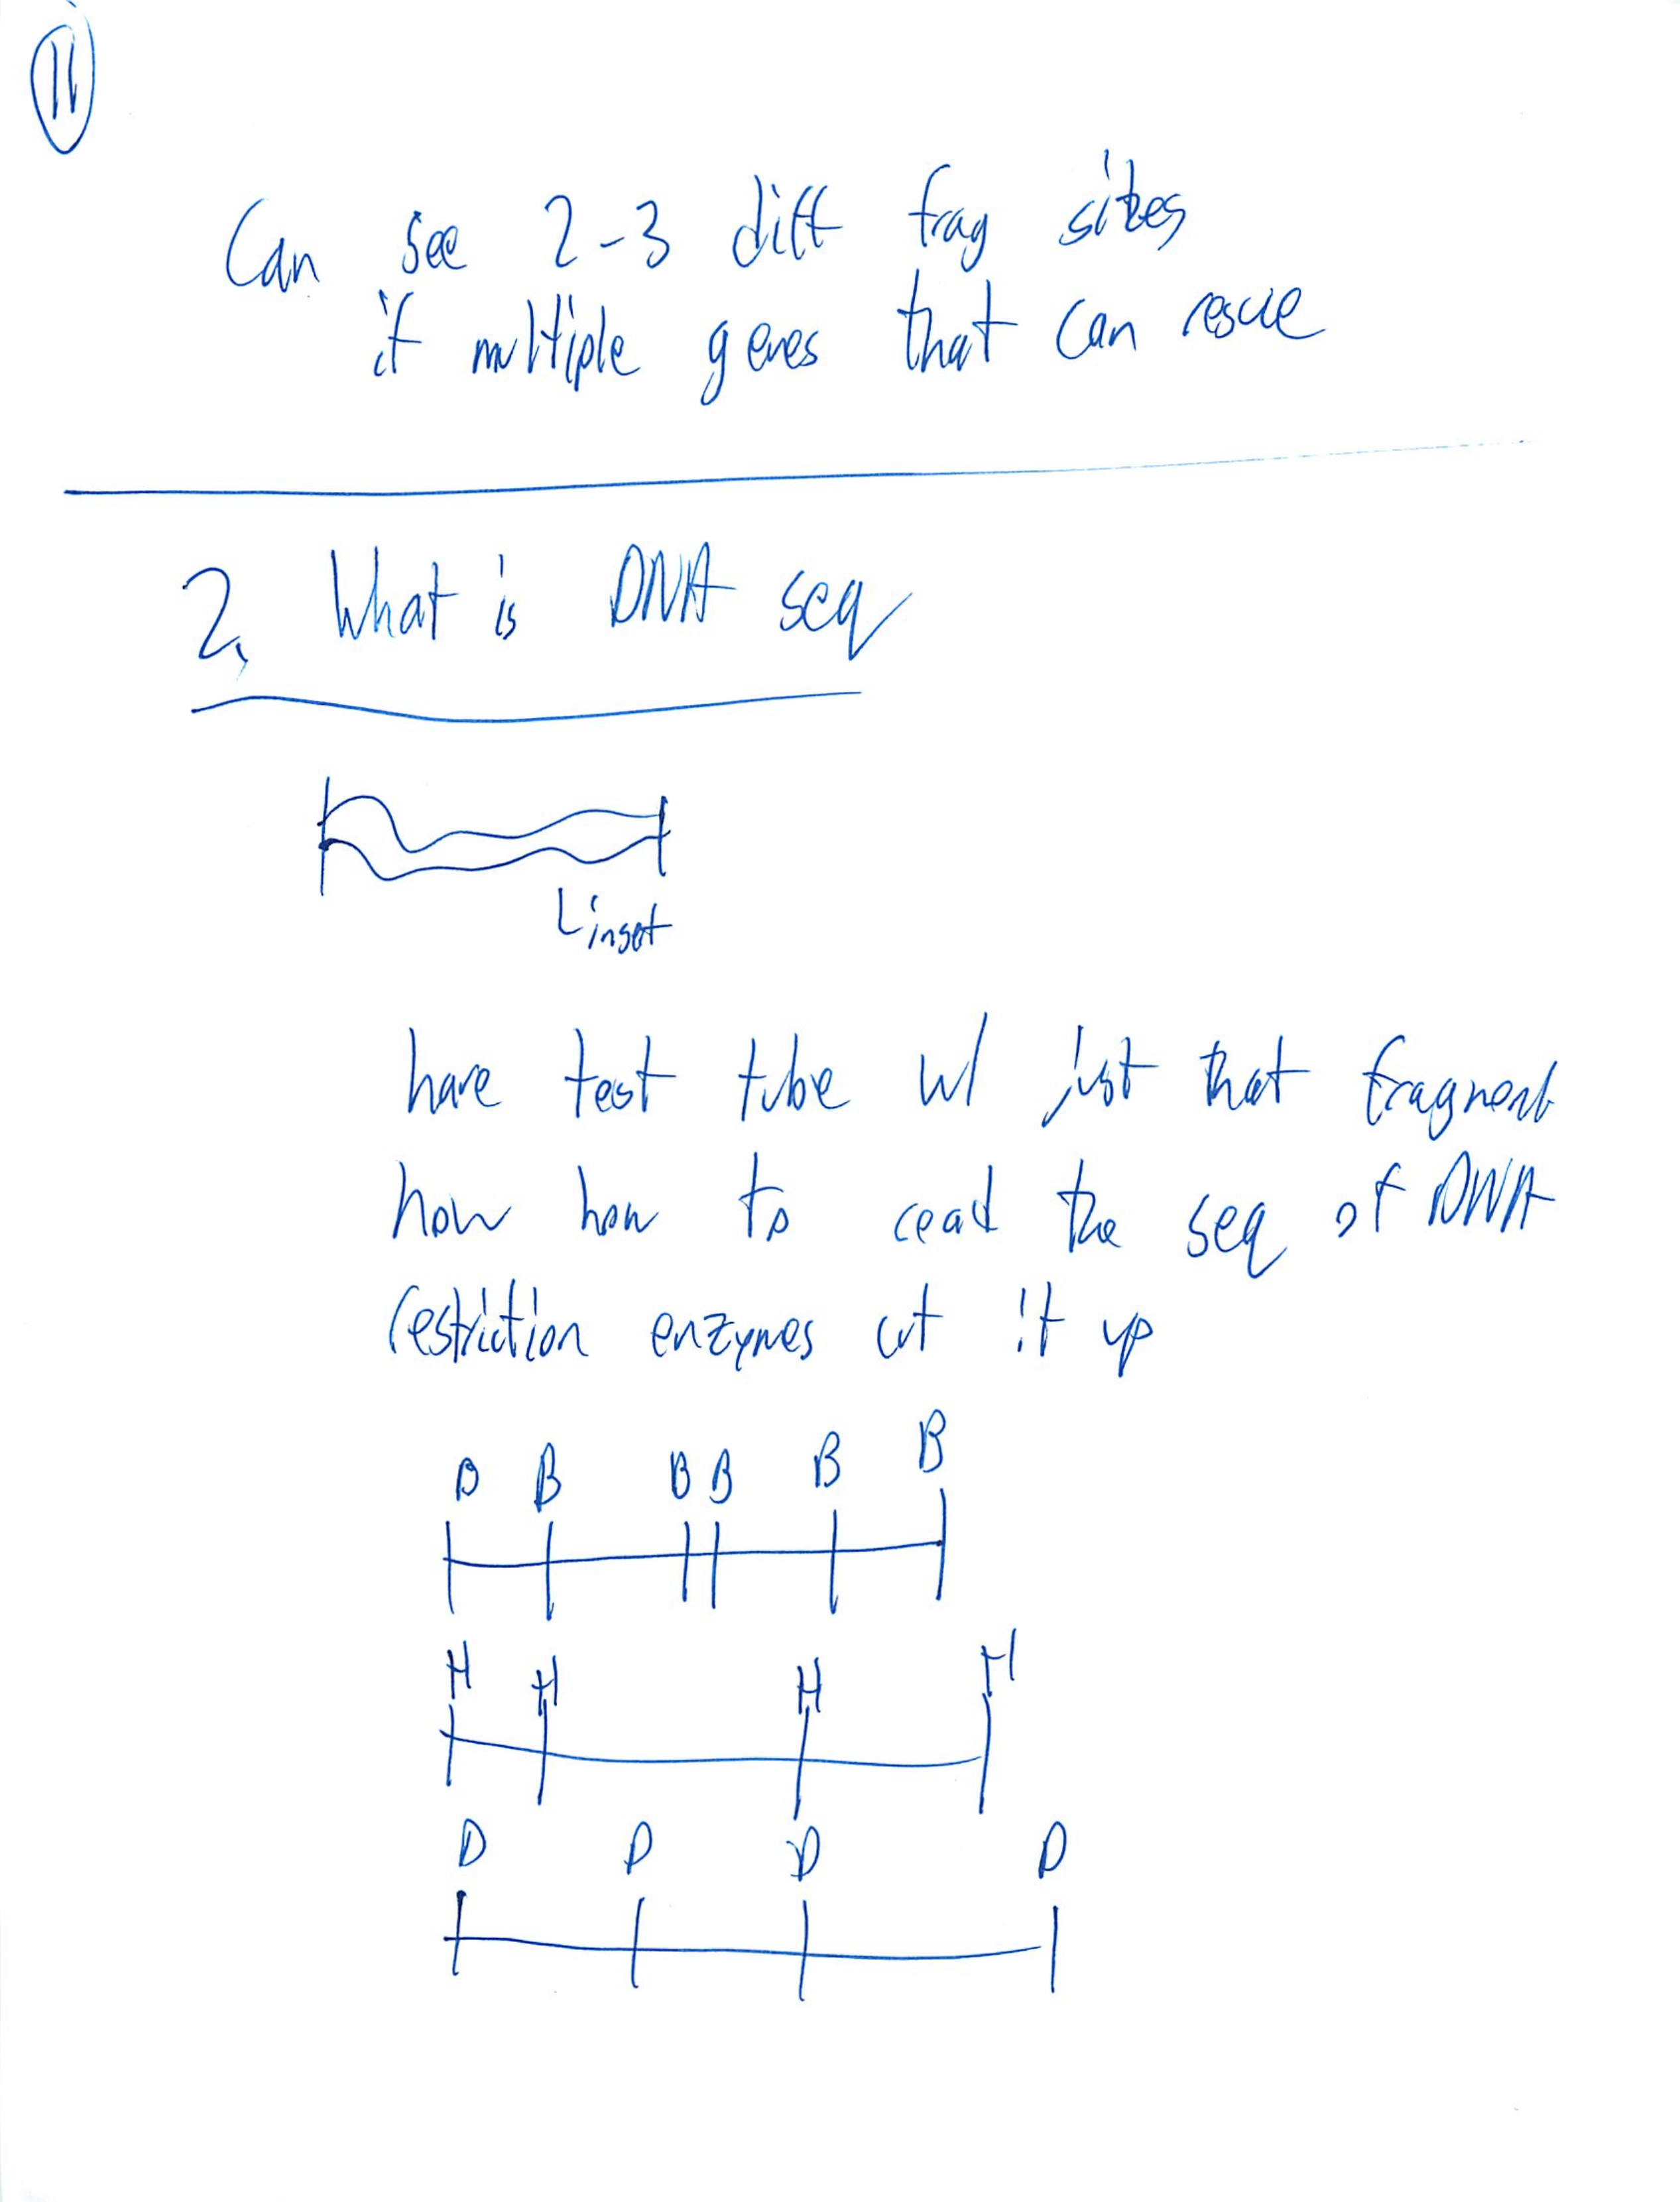 11
Can see 2-3 diff frag sizes
if multiple genes that can rescue
2. What is DNA seq
have test tube w/ just that fragment
how how to read the seq of DNA
restriction enzymes cut it up
B B B B B B
H H H H
D D D D